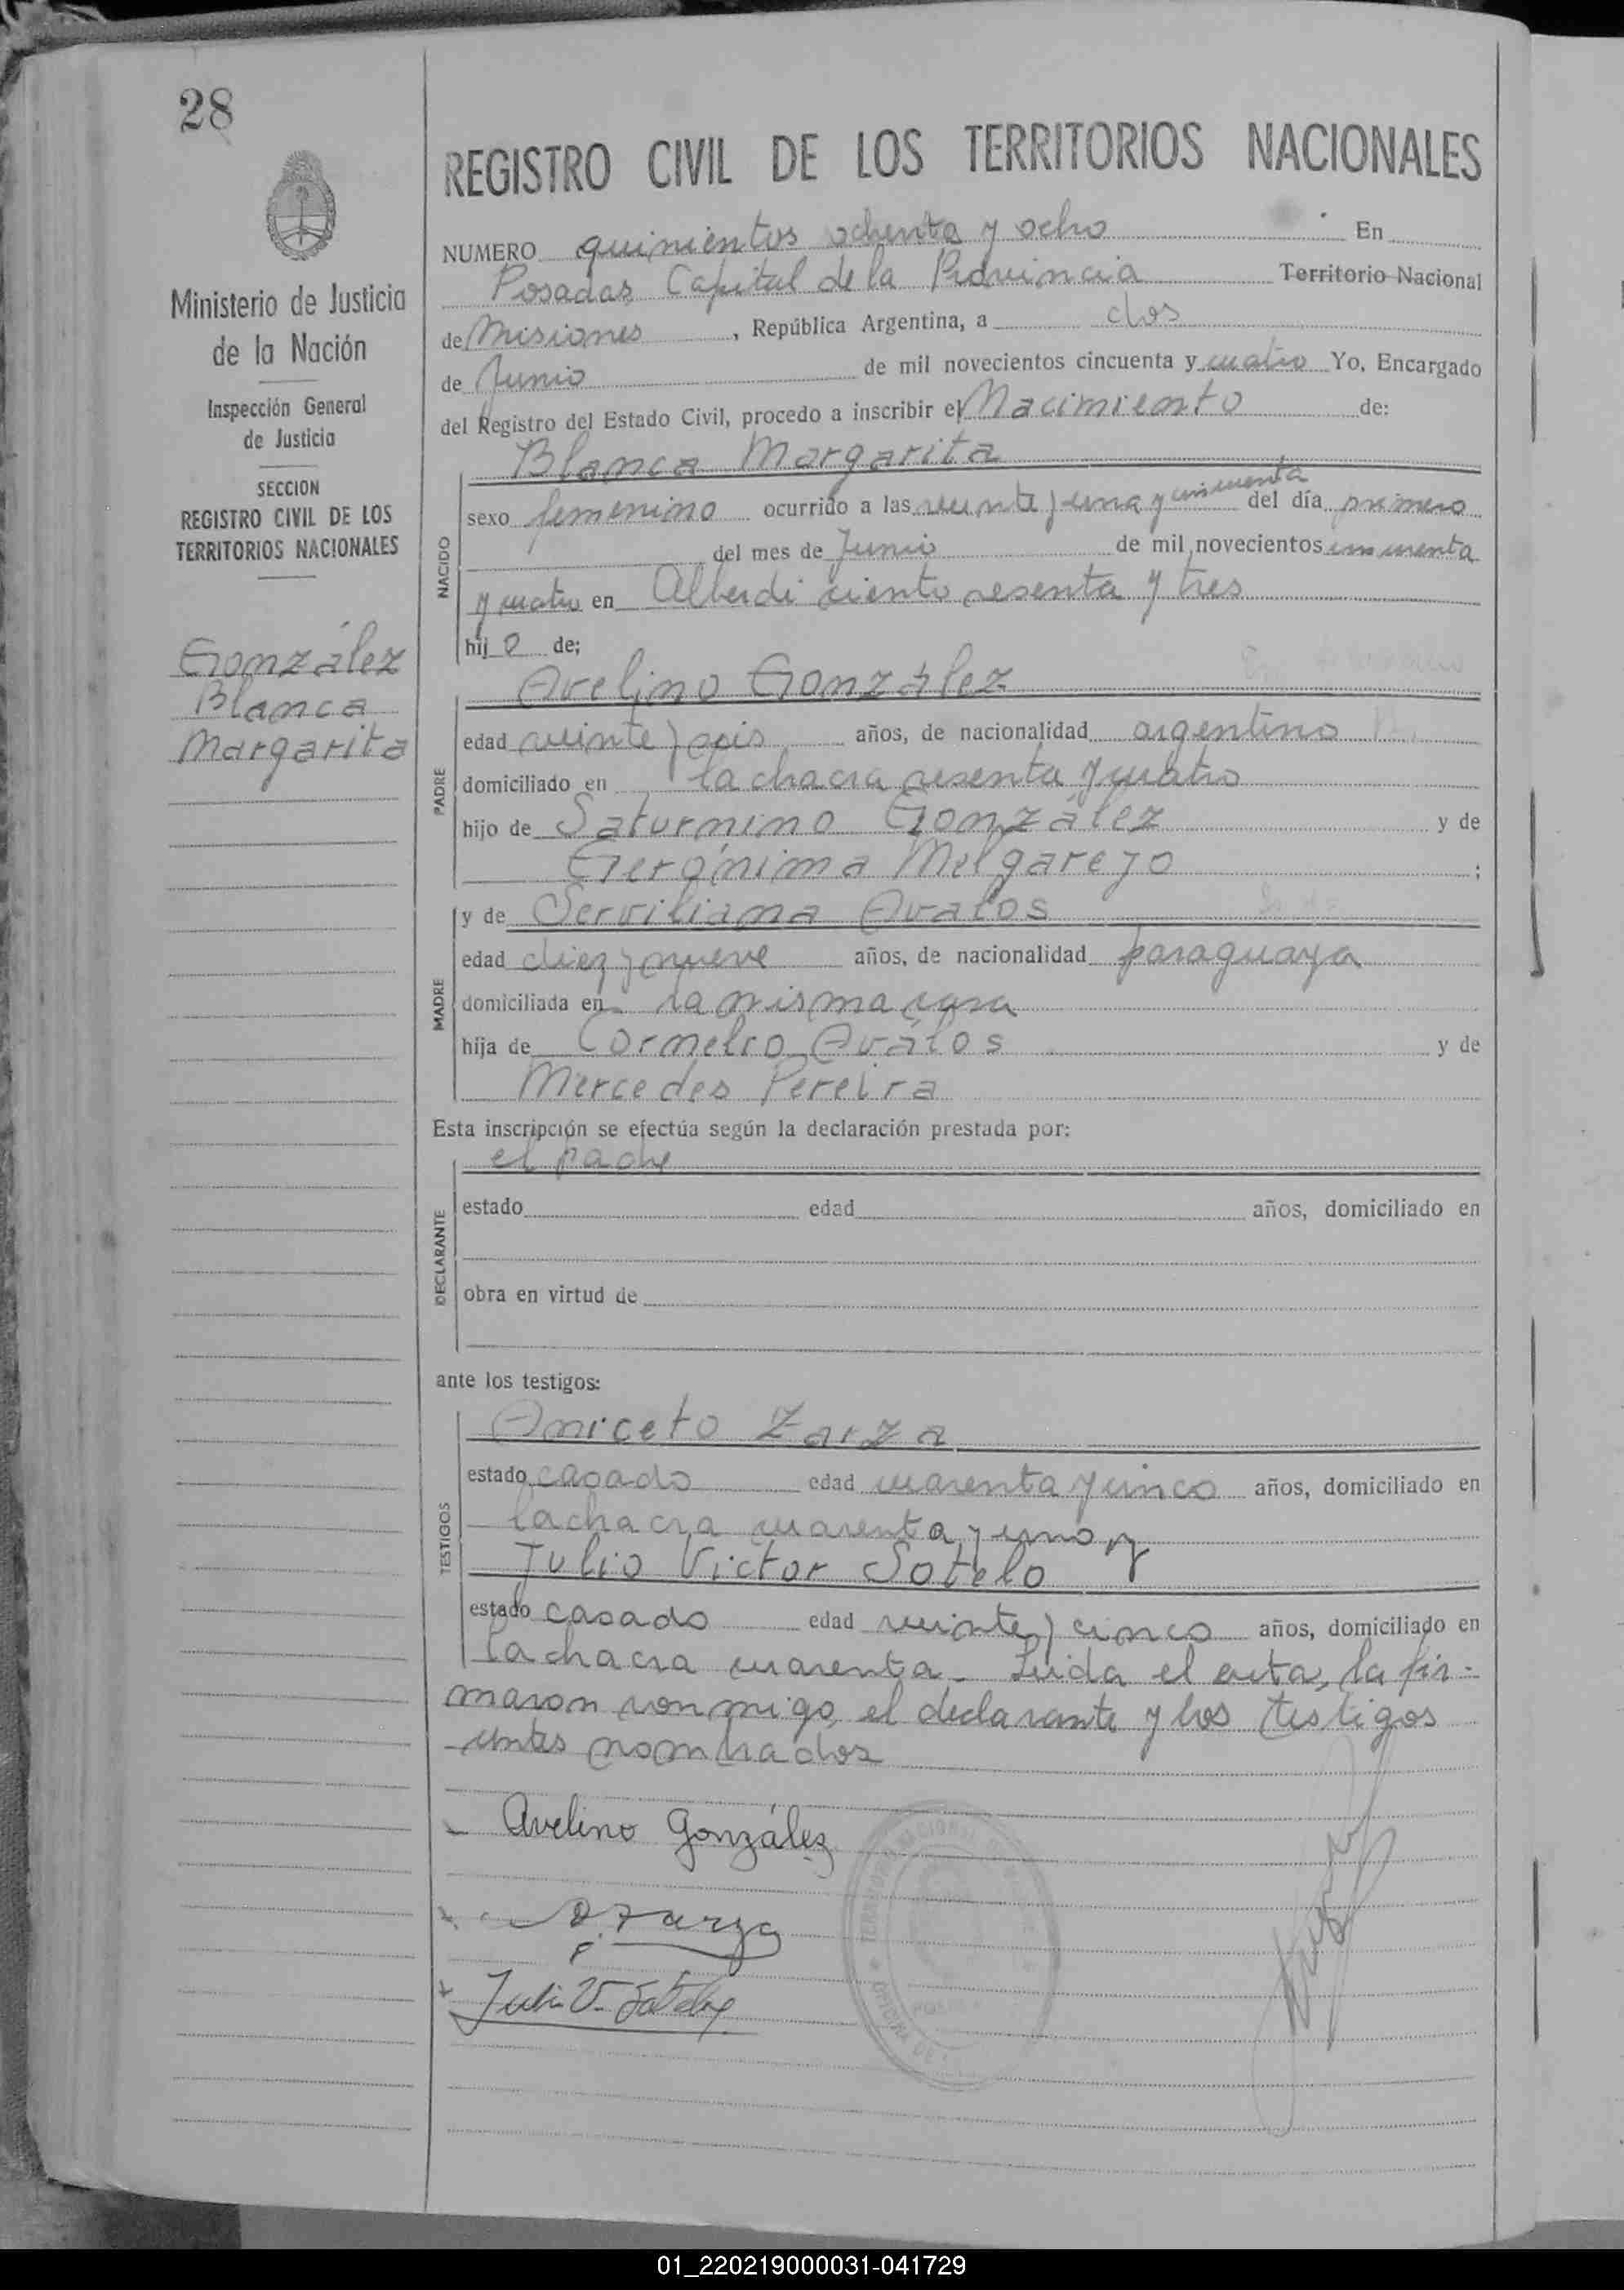 28
Ministerio de Justicia
de la Nación
Inspección General
de Justicia
SECCION
REGISTRO CIVIL DE LOS
TERRITORIOS NACIONALES
González
Blanca
Margarita
REGISTRO CIVIL DE LOS TERRITORIOS NACIONALES
NUMERO quinientos ochenta y ocho En
Posadas Capital de la Provincia Territorio Nacional
de Misiones, República Argentina, a dos
de Junio de mil novecientos cincuenta y cuatro Yo, Encargado
del Registro del Estado Civil, procedo a inscribir el Nacimiento de:
Blanca Margarita
NACIDO
sexo femenino ocurrido a las veinte y una y cincuenta del día primero
del mes de Junio de mil novecientos cincuenta
y cuatro en Alberdi ciento sesenta y tres
hij a de;
Avelino González
PADRE
edad veinte y seis años, de nacionalidad argentino
domiciliado en la chacra sesenta y cuatro
hijo de Saturnino González y de
Gerónima Melgarejo ;
MADRE
y de Serviliana Avalos
edad diez y nueve años, de nacionalidad paraguaya
domiciliada en la misma casa
hija de Cornelio Aválos y de
Mercedes Pereira
Esta inscripción se efectúa según la declaración prestada por:
el padre
DECLARANTE
estado edad años, domiciliado en
obra en virtud de
ante los testigos:
TESTIGOS
Aniceto Zarza
estado casado edad cuarenta y cinco años, domiciliado en
la chacra cuarenta y uno y
Julio Victor Sotelo
estado casado edad veinte y cinco años, domiciliado en
la chacra cuarenta. Leida el acta, la fir-
maron conmigo, el declarante y los testigos
antes nombrados
Avelino González
Zarza
Julio V. Sotelo
01_220219000031-041729